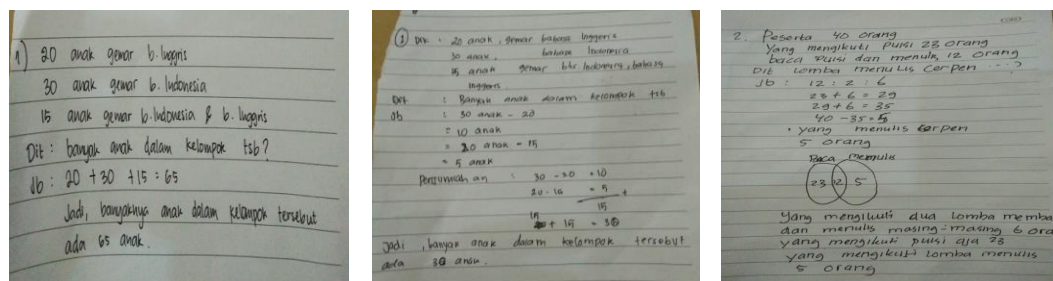 1) 20 anak gemar b. Inggris
30 anak gemar b. Indonesia
15 anak gemar b. Indonesia & b. Inggris
Dit : banyak anak dalam kelompok tsb?
Jb : 20 + 30 + 15 = 65
Jadi, banyaknya anak dalam kelompok tersebut
ada 65 anak.
1 Dik : 20 anak, gemar bahasa Inggeris
30 anak, bahasa Indonesia
15 anak gemar bhs. Indonesia, bahasa
Inggeris
Dit : Banyak anak dalam kelompok tsb
Jb : 30 anak - 20
= 10 anak
= 20 anak - 15
= 5 anak
Penjumlahan : 30 - 20 = 10
20 - 15 = 5 +
15
15 + 15 = 30
Jadi, banyak anak dalam kelompok tersebut
ada 30
2. Peserta 40 orang
Yang mengikuti puisi 23 orang
baca puisi dan menulis, 12 orang
Dit lomba menulis cerpen ...?
Jb : 12 : 2 : 6
23 + 6 = 29
29 + 6 = 35
40 - 35 = 5
• yang menulis cerpen
5 orang
Baca Menulis
23 12 5
Yang mengikuti dua lomba memba
dan menulis masing-masing 6 ora
yang mengikuti puisi aja 23
yang mengikuti lomba menulis
5 orang